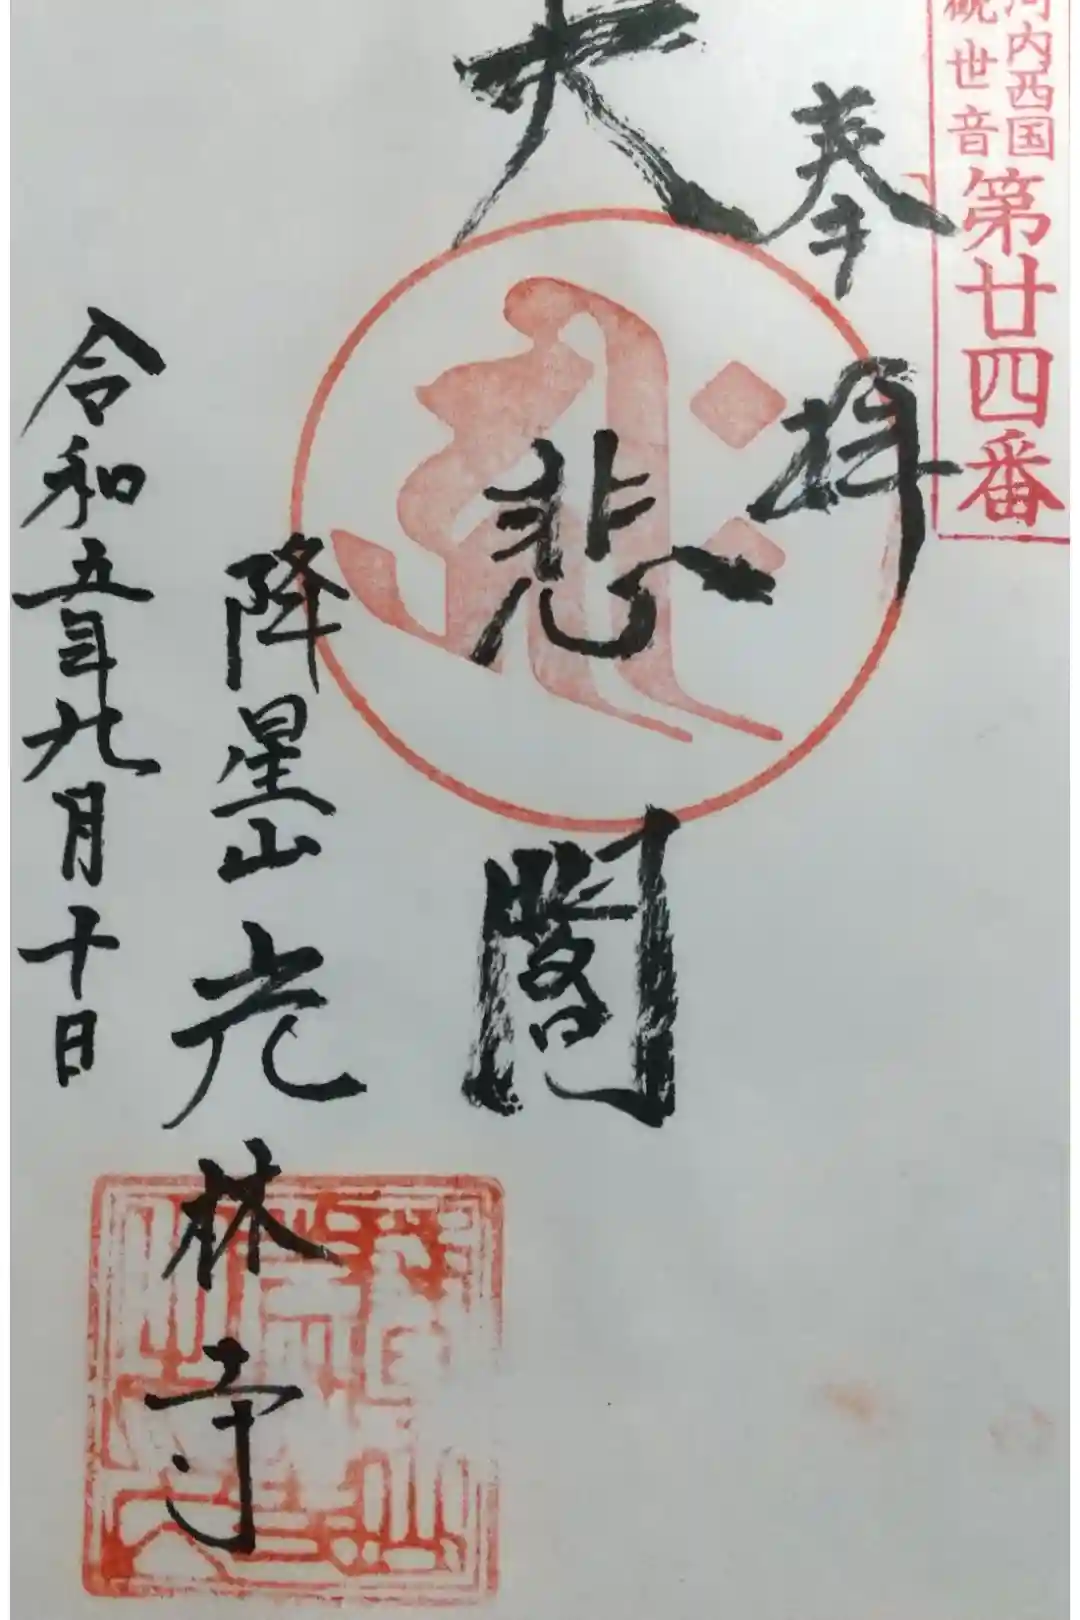 河内西国
観世音
第廿四番
奉拝
大悲閣
降星山光林寺
令和五年九月十日